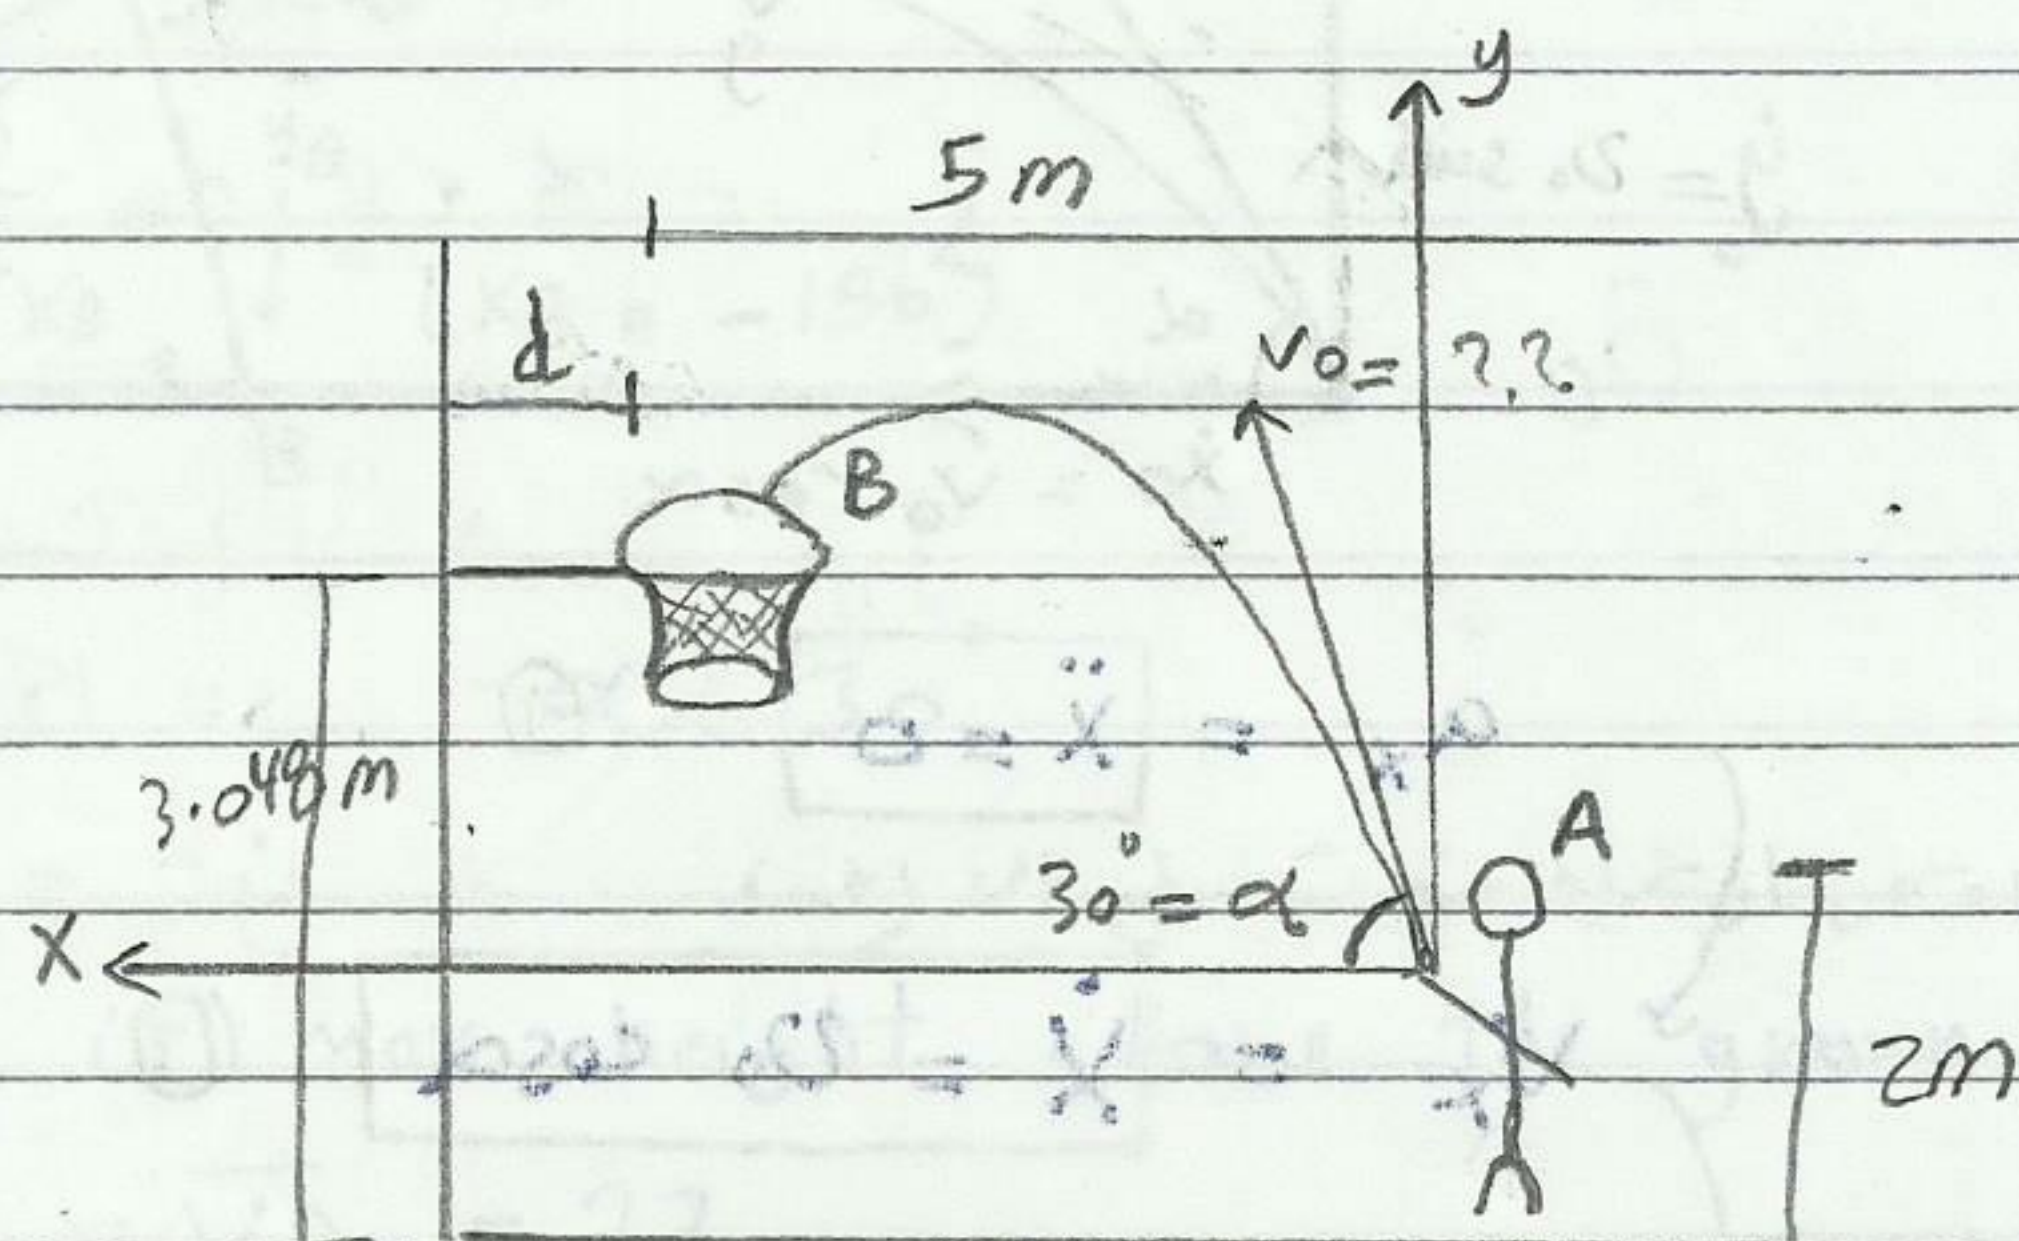 y
5m
d
v0= ??
B
3.048m
A
30°=α
X
2m